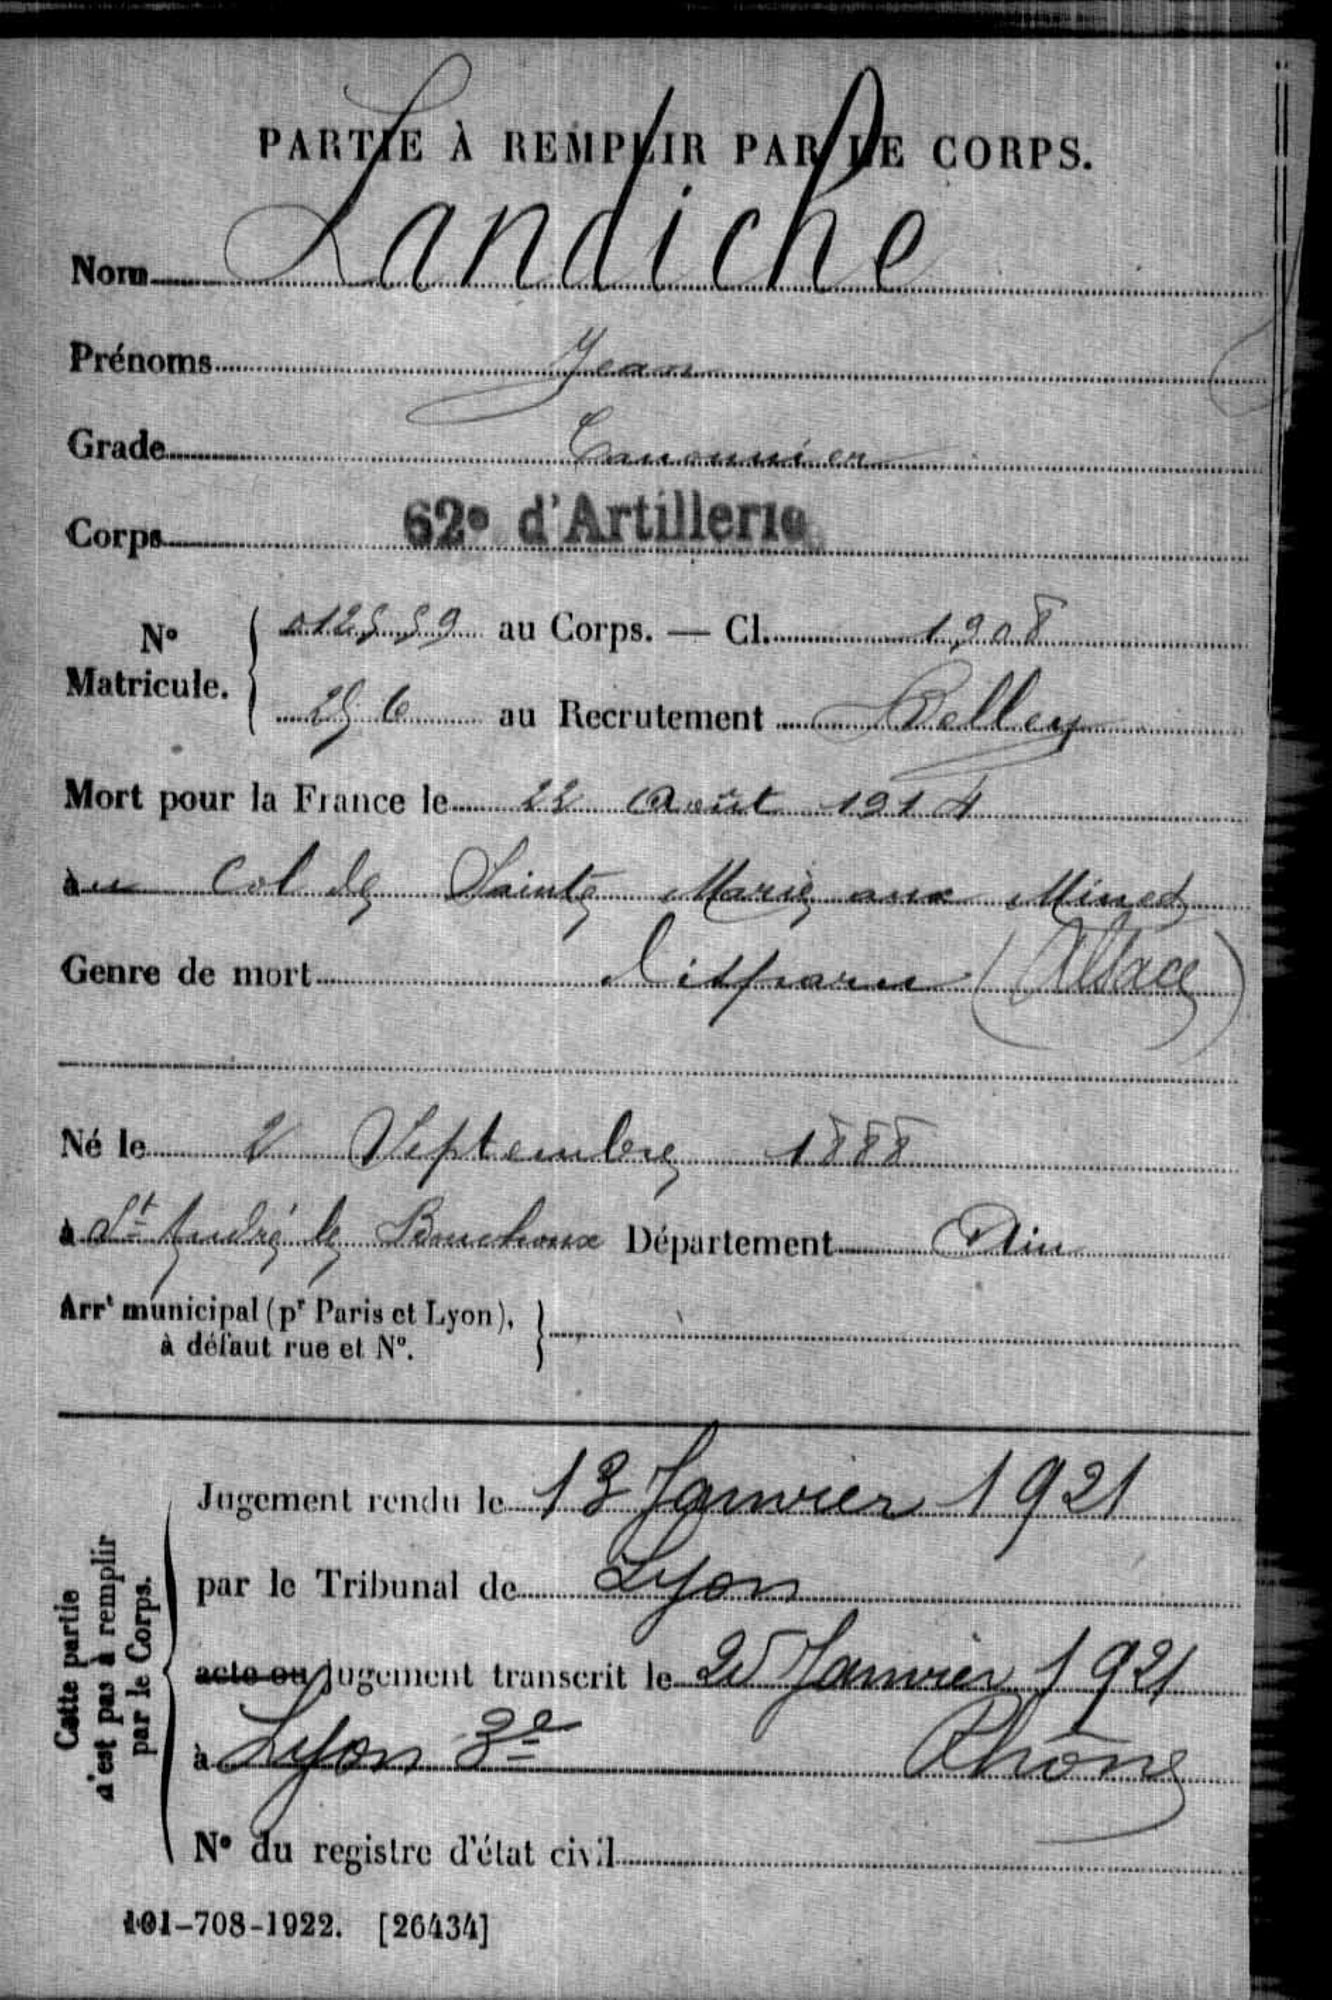 PARTIE À REMPLIR PAR LE CORPS.
Nom Landiche
Prénoms Jean
Grade Canonnier
Corps 62e d'Artillerie
N° Matricule. { 012559 au Corps. — Cl. 1908
256 au Recrutement Belley
Mort pour la France le 22 Août 1914
au Col de Sainte Marie aux Mines
Genre de mort disparu (Alsace)
Né le 2 Septembre 1888
à St André le Bouchoux Département Ain
Arrt municipal (pr Paris et Lyon), }
à défaut rue et N°.
Cette partie
n'est pas à remplir
par le Corps.
Jugement rendu le 13 Janvier 1921
par le Tribunal de Lyon
acte ou jugement transcrit le 25 Janvier 1921
à Lyon 3e Rhône
N° du registre d'état civil
101-708-1922. [26434]